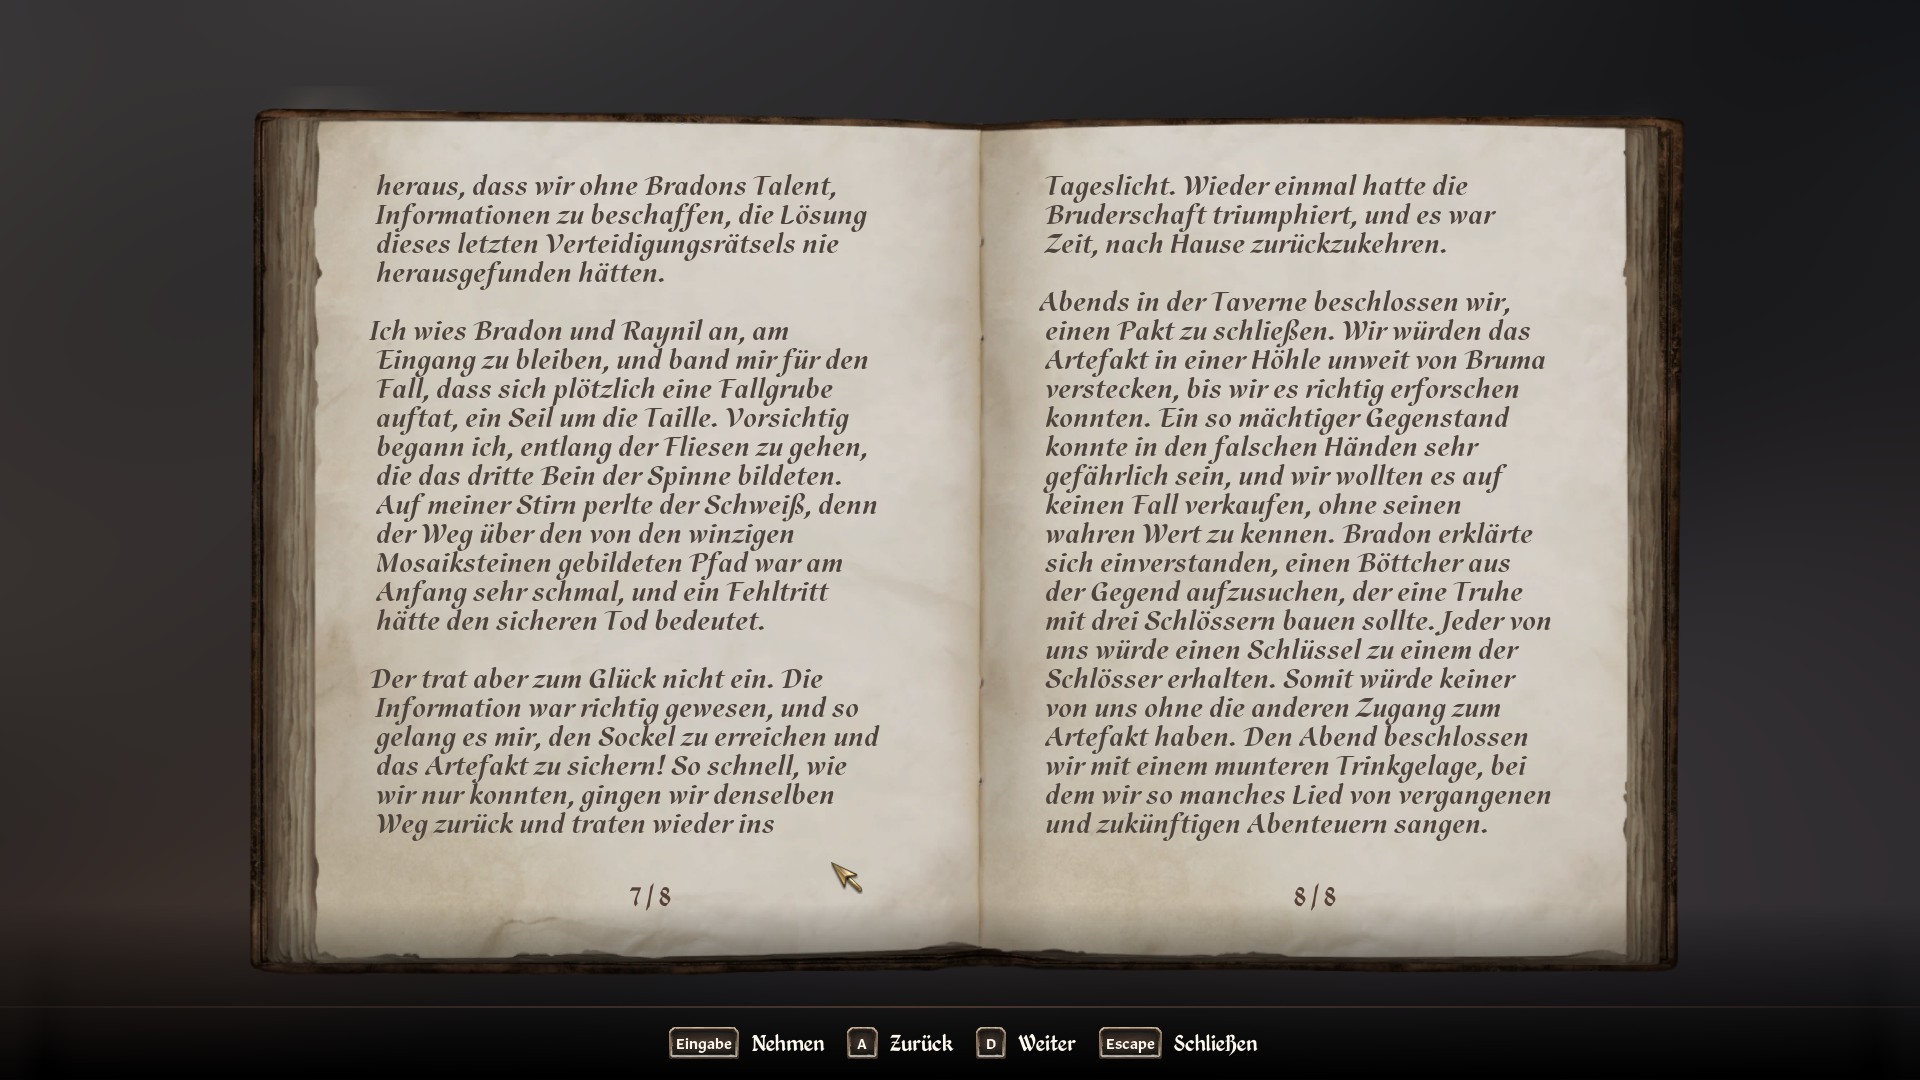 heraus, dass wir ohne Bradons Talent,
Informationen zu beschaffen, die Lösung
dieses letzten Verteidigungsrätsels nie
herausgefunden hätten.
Ich wies Bradon und Raynil an, am
Eingang zu bleiben, und band mir für den
Fall, dass sich plötzlich eine Fallgrube
auftat, ein Seil um die Taille. Vorsichtig
begann ich, entlang der Fliesen zu gehen,
die das dritte Bein der Spinne bildeten.
Auf meiner Stirn perlte der Schweiß, denn
der Weg über den von den winzigen
Mosaiksteinen gebildeten Pfad war am
Anfang sehr schmal, und ein Fehltritt
hätte den sicheren Tod bedeutet.
Der trat aber zum Glück nicht ein. Die
Information war richtig gewesen, und so
gelang es mir, den Sockel zu erreichen und
das Artefakt zu sichern! So schnell, wie
wir nur konnten, gingen wir denselben
Weg zurück und traten wieder ins
7/8
Tageslicht. Wieder einmal hatte die
Bruderschaft triumphiert, und es war
Zeit, nach Hause zurückzukehren.
Abends in der Taverne beschlossen wir,
einen Pakt zu schließen. Wir würden das
Artefakt in einer Höhle unweit von Bruma
verstecken, bis wir es richtig erforschen
konnten. Ein so mächtiger Gegenstand
konnte in den falschen Händen sehr
gefährlich sein, und wir wollten es auf
keinen Fall verkaufen, ohne seinen
wahren Wert zu kennen. Bradon erklärte
sich einverstanden, einen Böttcher aus
der Gegend aufzusuchen, der eine Truhe
mit drei Schlössern bauen sollte. Jeder von
uns würde einen Schlüssel zu einem der
Schlösser erhalten. Somit würde keiner
von uns ohne die anderen Zugang zum
Artefakt haben. Den Abend beschlossen
wir mit einem munteren Trinkgelage, bei
dem wir so manches Lied von vergangenen
und zukünftigen Abenteuern sangen.
8/8
Eingabe Nehmen A Zurück D Weiter Escape Schließen